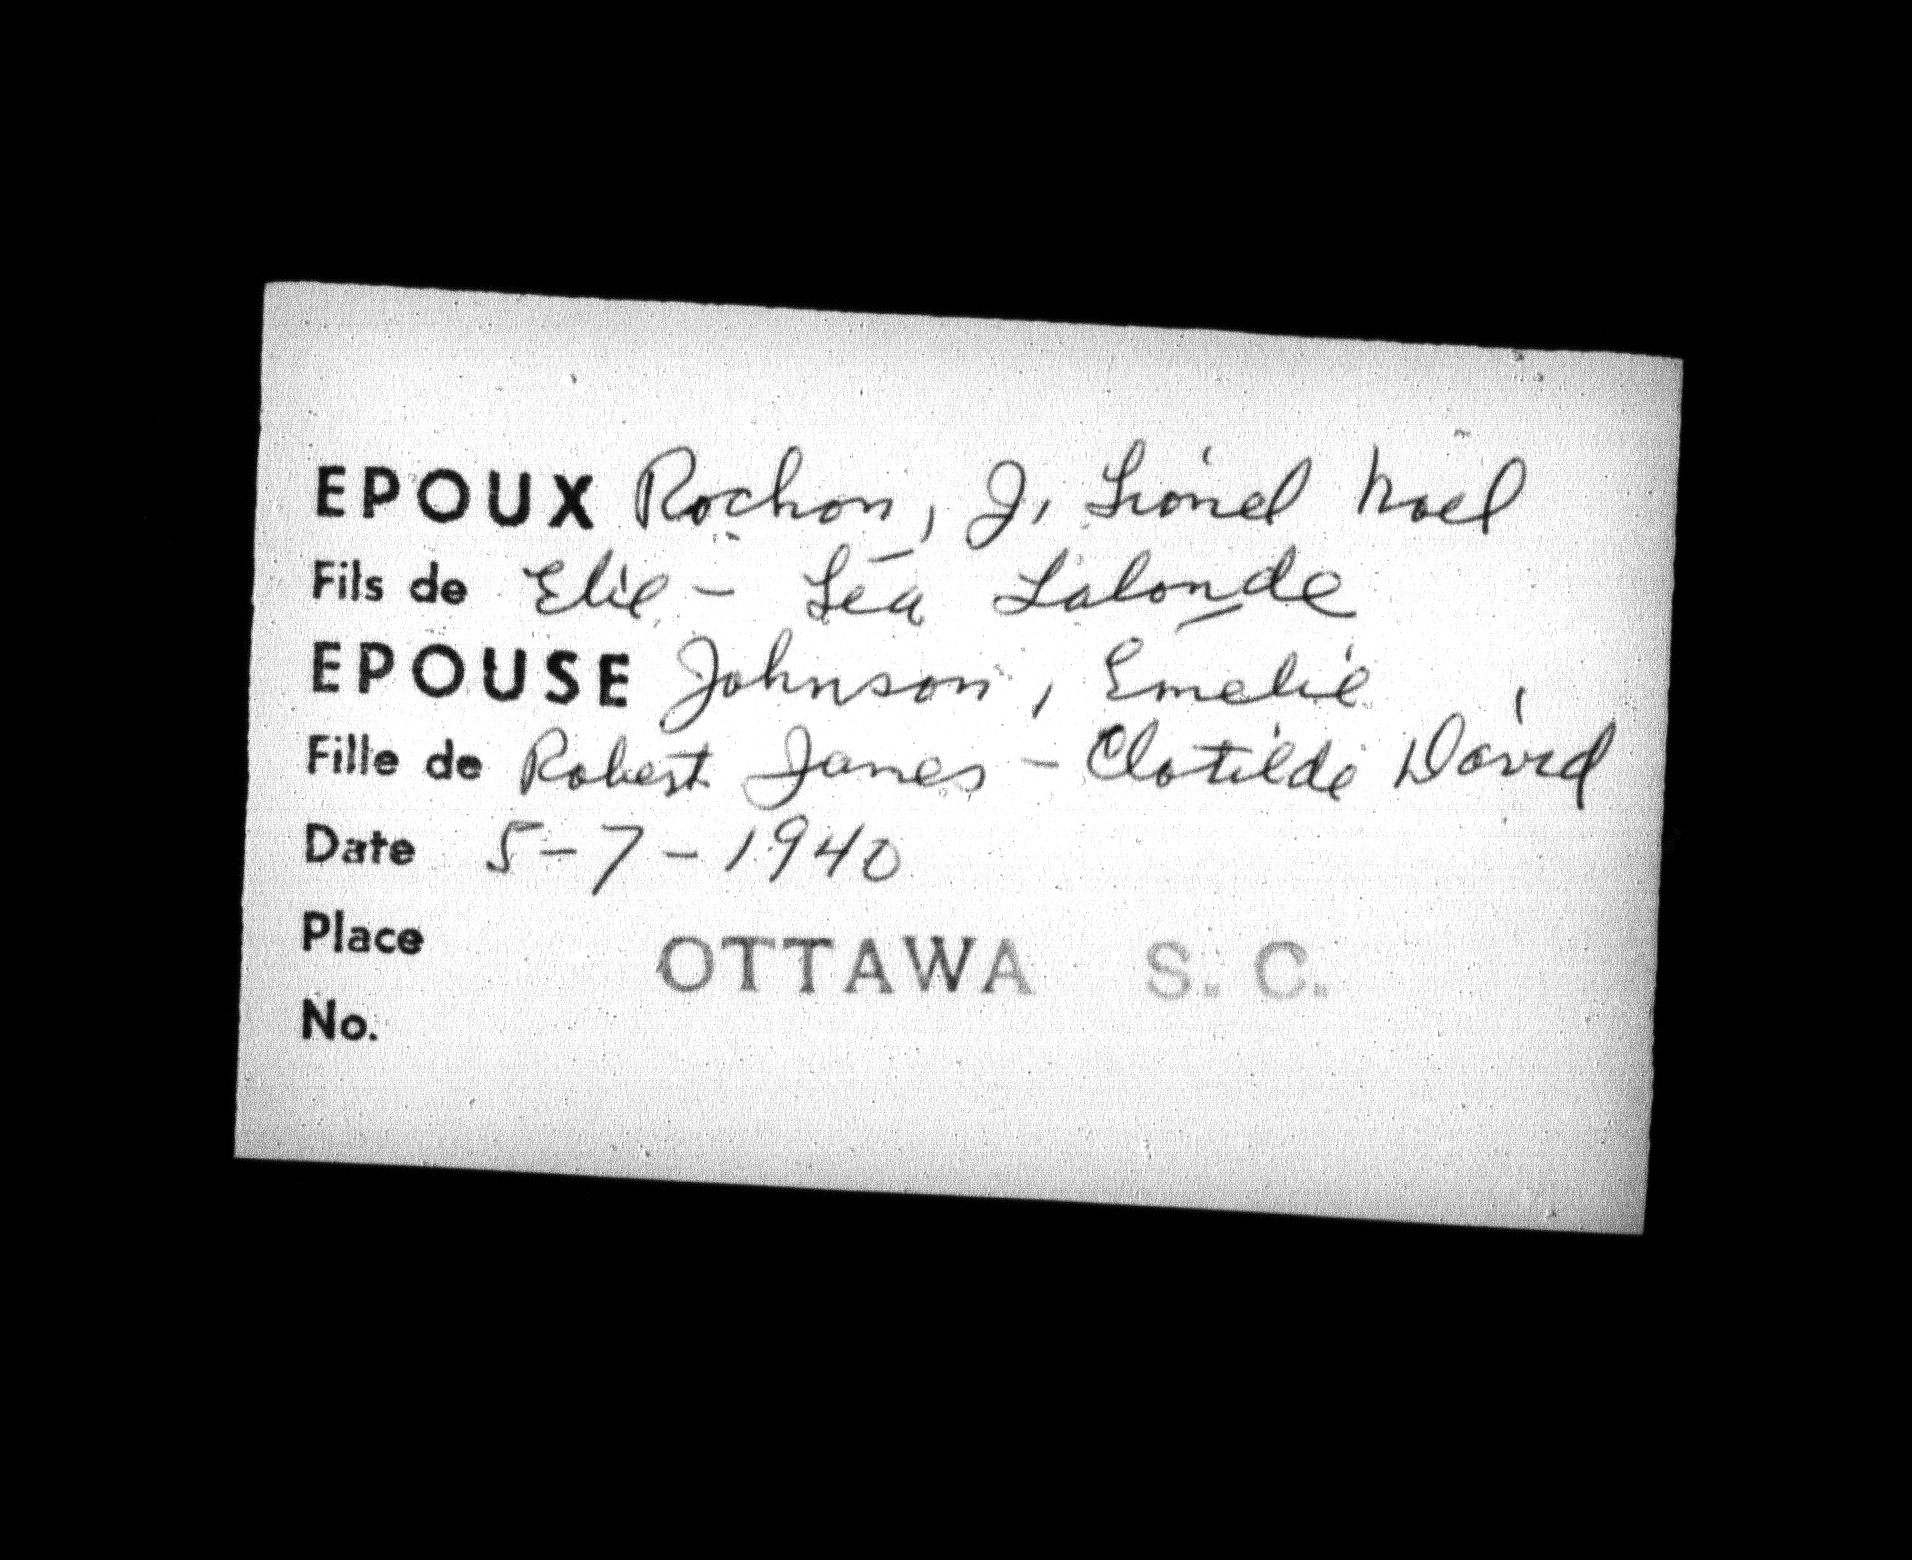 EPOUX Rochon, J, Lionel Noel
Fils de Elie - Léa Lalonde
EPOUSE Johnson, Emelie
Fille de Robert James - Clotilde David
Date 5-7-1940
Place OTTAWA S.C.
No.